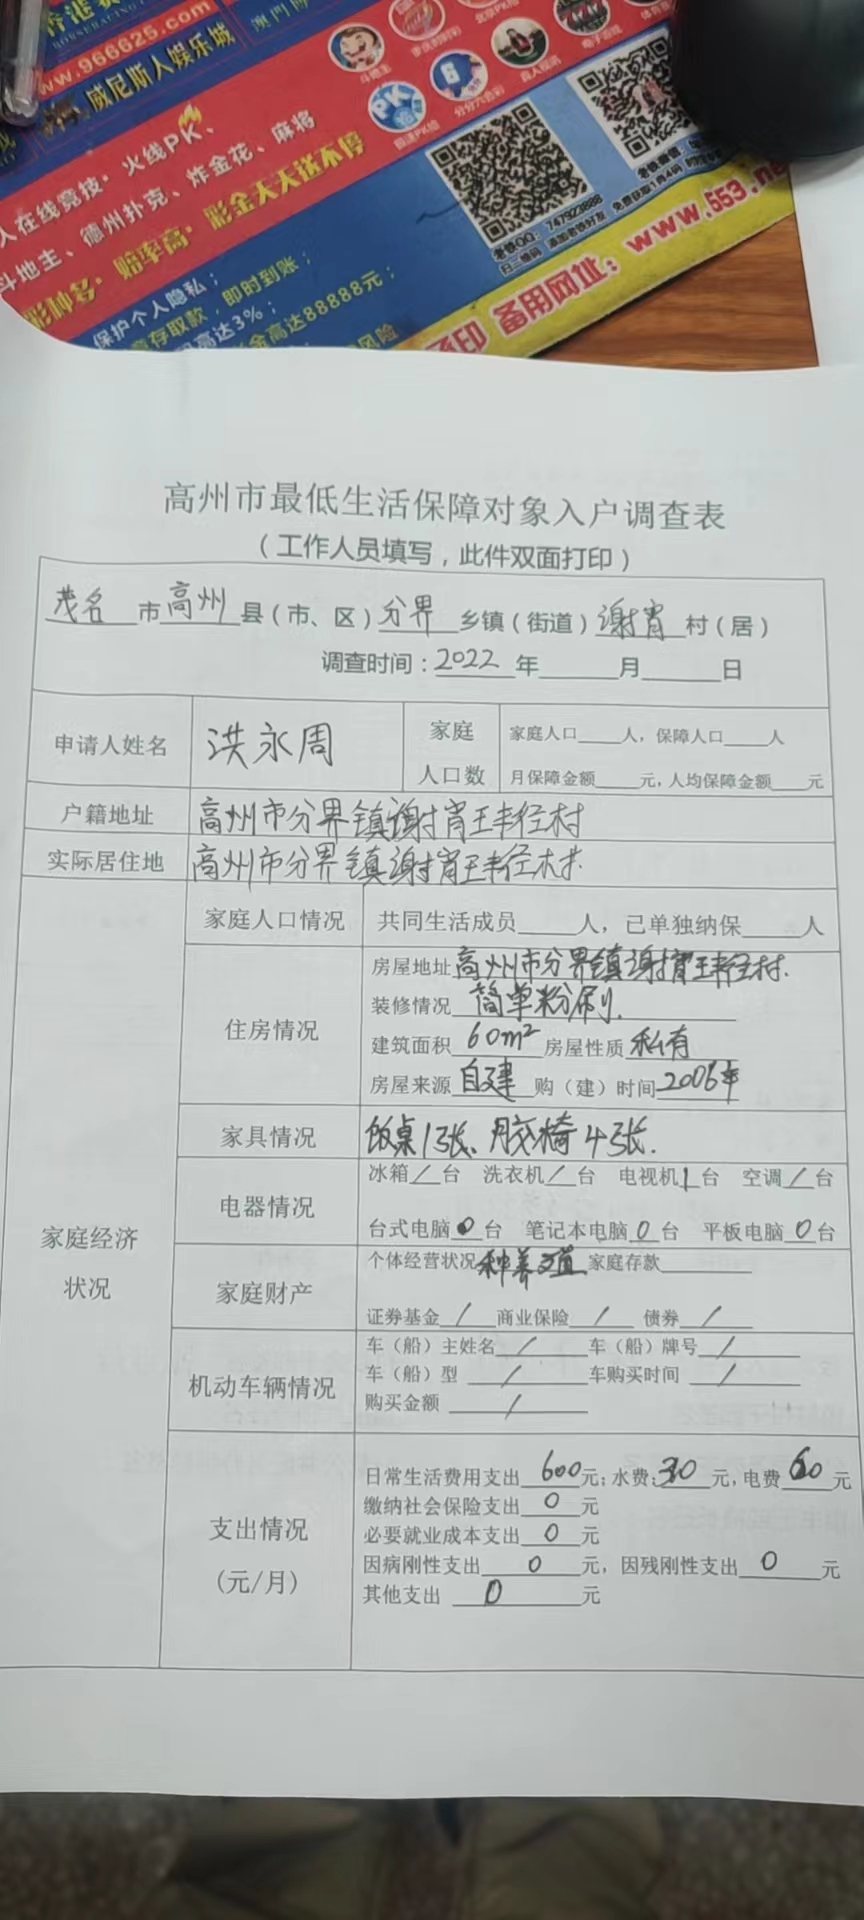 www.966625.com
威尼斯人娱乐城
人在线竞技·火线PK、
斗地主、德州扑克、炸金花、麻将
彩种多·赔率高·彩金天天送不停
保护个人隐私；
存取款，即时到账；
高达3%；
金高达88888元；
风险
分分六合彩
真人视讯
电子游戏
老铁QQ：747923888
扫二维码 添加老铁好友
备用网址：www.553.ne
高州市最低生活保障对象入户调查表
（工作人员填写，此件双面打印）
茂名市高州县（市、区）分界乡镇（街道）谢肖村（居）
调查时间：2022年____月____日
申请人姓名 洪永周 家庭人口数 家庭人口____人，保障人口____人
月保障金额____元，人均保障金额____元
户籍地址 高州市分界镇谢肖王丰径村
实际居住地 高州市分界镇谢肖王丰径村.
家庭经济状况
家庭人口情况 共同生活成员____人，已单独纳保____人
住房情况 房屋地址 高州市分界镇谢肖王丰径村.
装修情况 简单粉刷.
建筑面积 60m² 房屋性质 私有
房屋来源 自建 购（建）时间 2006年
家具情况 饭桌1张、胶椅4张.
电器情况 冰箱/台 洗衣机/台 电视机1台 空调/台
台式电脑0台 笔记本电脑0台 平板电脑0台
家庭财产 个体经营状况 种养殖 家庭存款____
证券基金 / 商业保险 / 债券 /
机动车辆情况 车（船）主姓名 / 车（船）牌号 /
车（船）型 / 车购买时间 /
购买金额 /
支出情况(元/月) 日常生活费用支出 600元；水费：30元，电费60元
缴纳社会保险支出 0 元
必要就业成本支出 0 元
因病刚性支出 0 元，因残刚性支出 0 元
其他支出 0 元